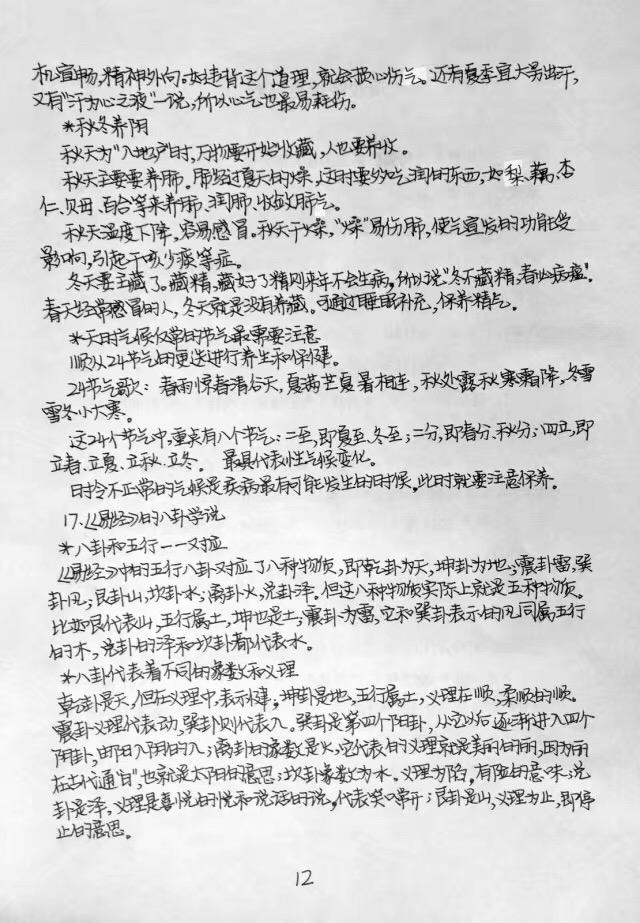 机宣畅,精神外向。如违背这个道理,就会损心伤气。还有夏季宜大劳出汗,
又有"汗为心之液"一说,所以心气也最易耗伤。
*秋冬养阴
秋天为"入地户"时,万物要开始收藏,人也要养收。
秋天主要要养肺。肺经过夏天的燥,这时要多吃润的东西,如梨、藕、杏
仁、贝母、百合等来养肺、润肺、收敛肺气。
秋天温度下降,容易感冒。秋天干燥,"燥"易伤肺,使气宣发的功能受
影响,引起干咳少痰等症。
冬天要主藏了。藏精,藏好了精则来年不会生病。所以说"冬不藏精,春必病瘟"。
春天经常感冒的人,冬天就是没有养藏。可通过睡眠补充,保养精气。
*天时气候仅常的节气最需要注意
顺从24节气的更迭进行养生和保健。
24节气歌:春雨惊春清谷天,夏满芒夏暑相连,秋处露秋寒霜降,冬雪
雪冬小大寒。
这24个节气中,重点有八个节气:二至,即夏至、冬至;二分,即春分、秋分;四立,即
立春、立夏、立秋、立冬。 最具代表性气候变化。
时令不正常的气候是疾病最有可能发生的时候。此时就要注意保养。
17.《易经》的八卦学说
*八卦和五行一一对应
《易经》中的五行八卦对应了八种物质,即乾卦为天,坤卦为地;震卦雷,巽
卦风;艮卦山,坎卦水;离卦火,兑卦泽。但这八种物质实际上就是五种物质。
比如艮代表山,五行属土,坤也是土;震卦为雷,它和巽卦表示的风同属五行
的木,兑卦的泽和坎卦都代表水。
*八卦代表着不同的象数和义理
乾卦是天,但在义理中,表示健。坤卦是地,五行属土,义理在顺,柔顺的顺。
震卦义理代表动,巽卦则代表入。巽卦是第四个阳卦,从它以后逐渐进入四个
阴卦,由阳入阴的入;离卦的象数是火,它代表的义理就是美丽的丽,因为丽
在古代通"日",也就是太阳的意思;坎卦象数为水。义理为陷,有险的意味;兑
卦是泽,义理是喜悦的悦和说话的说,代表笑口常开;艮卦是山,义理为止,即停
止的意思。
12